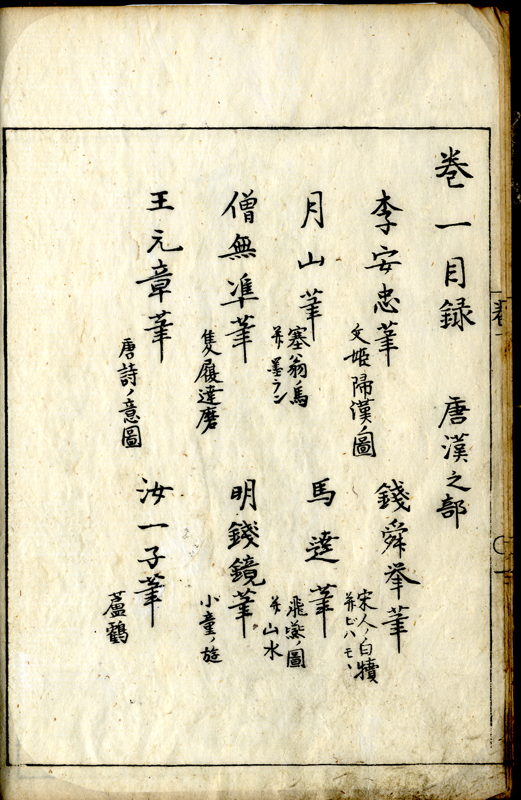 巻一目録　唐漢之部
李安忠筆
文姫帰漢ノ圖
錢舜挙筆
宋人ノ白犢
并ビハモヽ
月山筆
塞翁馬
并墨ラン
馬逵筆
飛燕ノ圖
并山水
僧無準筆
隻履達磨
明錢鏡筆
小童ノ遊
王元章筆
唐詩ノ意圖
汝一子筆
蘆鶴